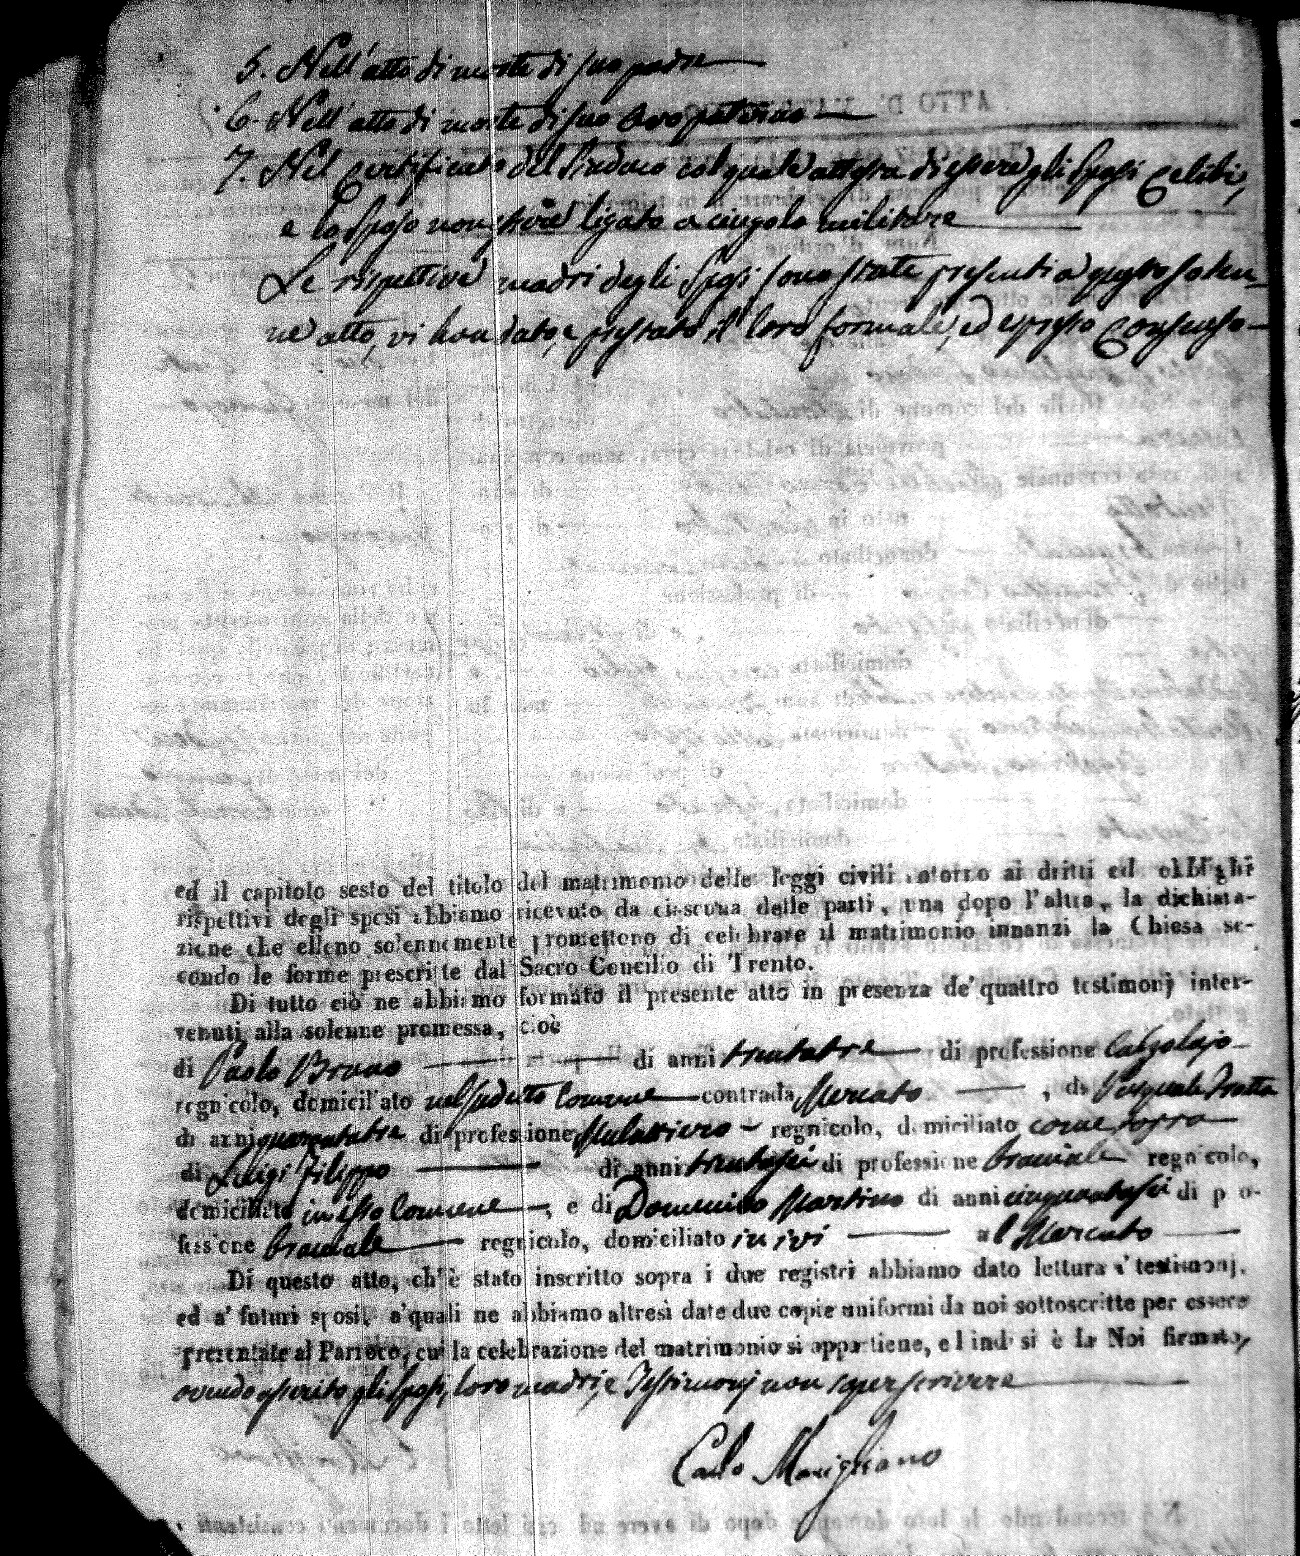 5. Nell'atto di morte di suo padre
6. Nell'atto di morte di suo Avo paterno
7. Nel Certificato del Sindaco col quale attesta di essere gli Sposi Celibi,
e lo Sposo non essere ligato a cingolo militare
Le rispettive madri degli Sposi sono state presenti a questo solen-
ne atto, vi han dato, e prestato il loro formale, ed espresso Consenso
ed il capitolo sesto del titolo del matrimonio delle leggi civili intorno ai dritti ed obblighi
rispettivi degli sposi abbiamo ricevuto da ciascuna delle parti, una dopo l'altra, la dichiara-
zione che elleno solennemente promettono di celebrare il matrimonio innanzi la Chiesa se-
condo le forme prescritte dal Sacro Concilio di Trento.
Di tutto ciò ne abbiamo formato il presente atto in presenza de' quattro testimonj inter-
venuti alla solenne promessa, cioè
di Paolo Bruno di anni trentatre di professione Calzolajo
regnicolo, domiciliato nel sudetto Comune contrada Mercato, di Pasquale Protta
di anni quarantatre di professione Mulattiero regnicolo, domiciliato come sopra
di Luigi Filippo di anni trentasei di professione bracciale regnicolo,
domiciliato in esso Comune, e di Domenico Martino di anni cinquantasei di pro-
fessione bracciale regnicolo, domiciliato in ivi al Mercato
Di questo atto, ch'è stato inscritto sopra i due registri abbiamo dato lettura a' testimonj,
ed a' futuri sposi, a' quali ne abbiamo altresì date due copie uniformi da noi sottoscritte per essere
presentate al Parroco, cui la celebrazione del matrimonio si appartiene, e l indi si è da Noi firmato,
avendo asserito gli Sposi, loro madri, e Testimonj non saper scrivere
Carlo Marigliano